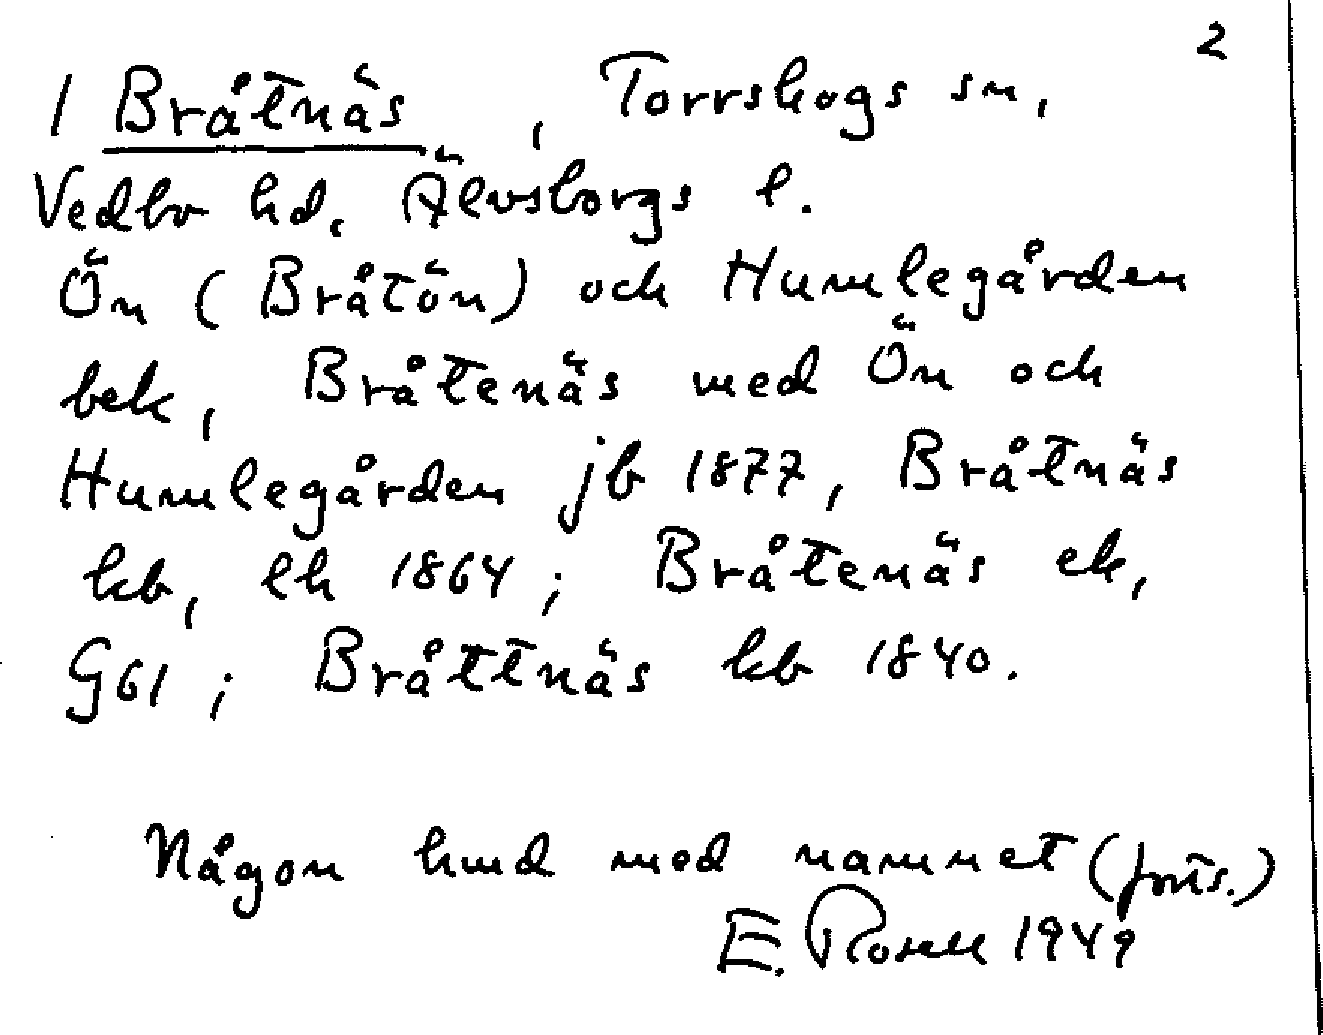 2
1 Bråtnäs, Torrskogs sn,
Vedbo hd, Älvsborgs l.
Ön (Bråtön) och Humlegården
bek, Bråtenäs med Ön och
Humlegården jb 1877, Bråtnäs
kb, lh 1864; Bråtenäs ek,
G61; Bråttnäs kb 1840.
Någon hmd med namnet (forts.)
E. 1949